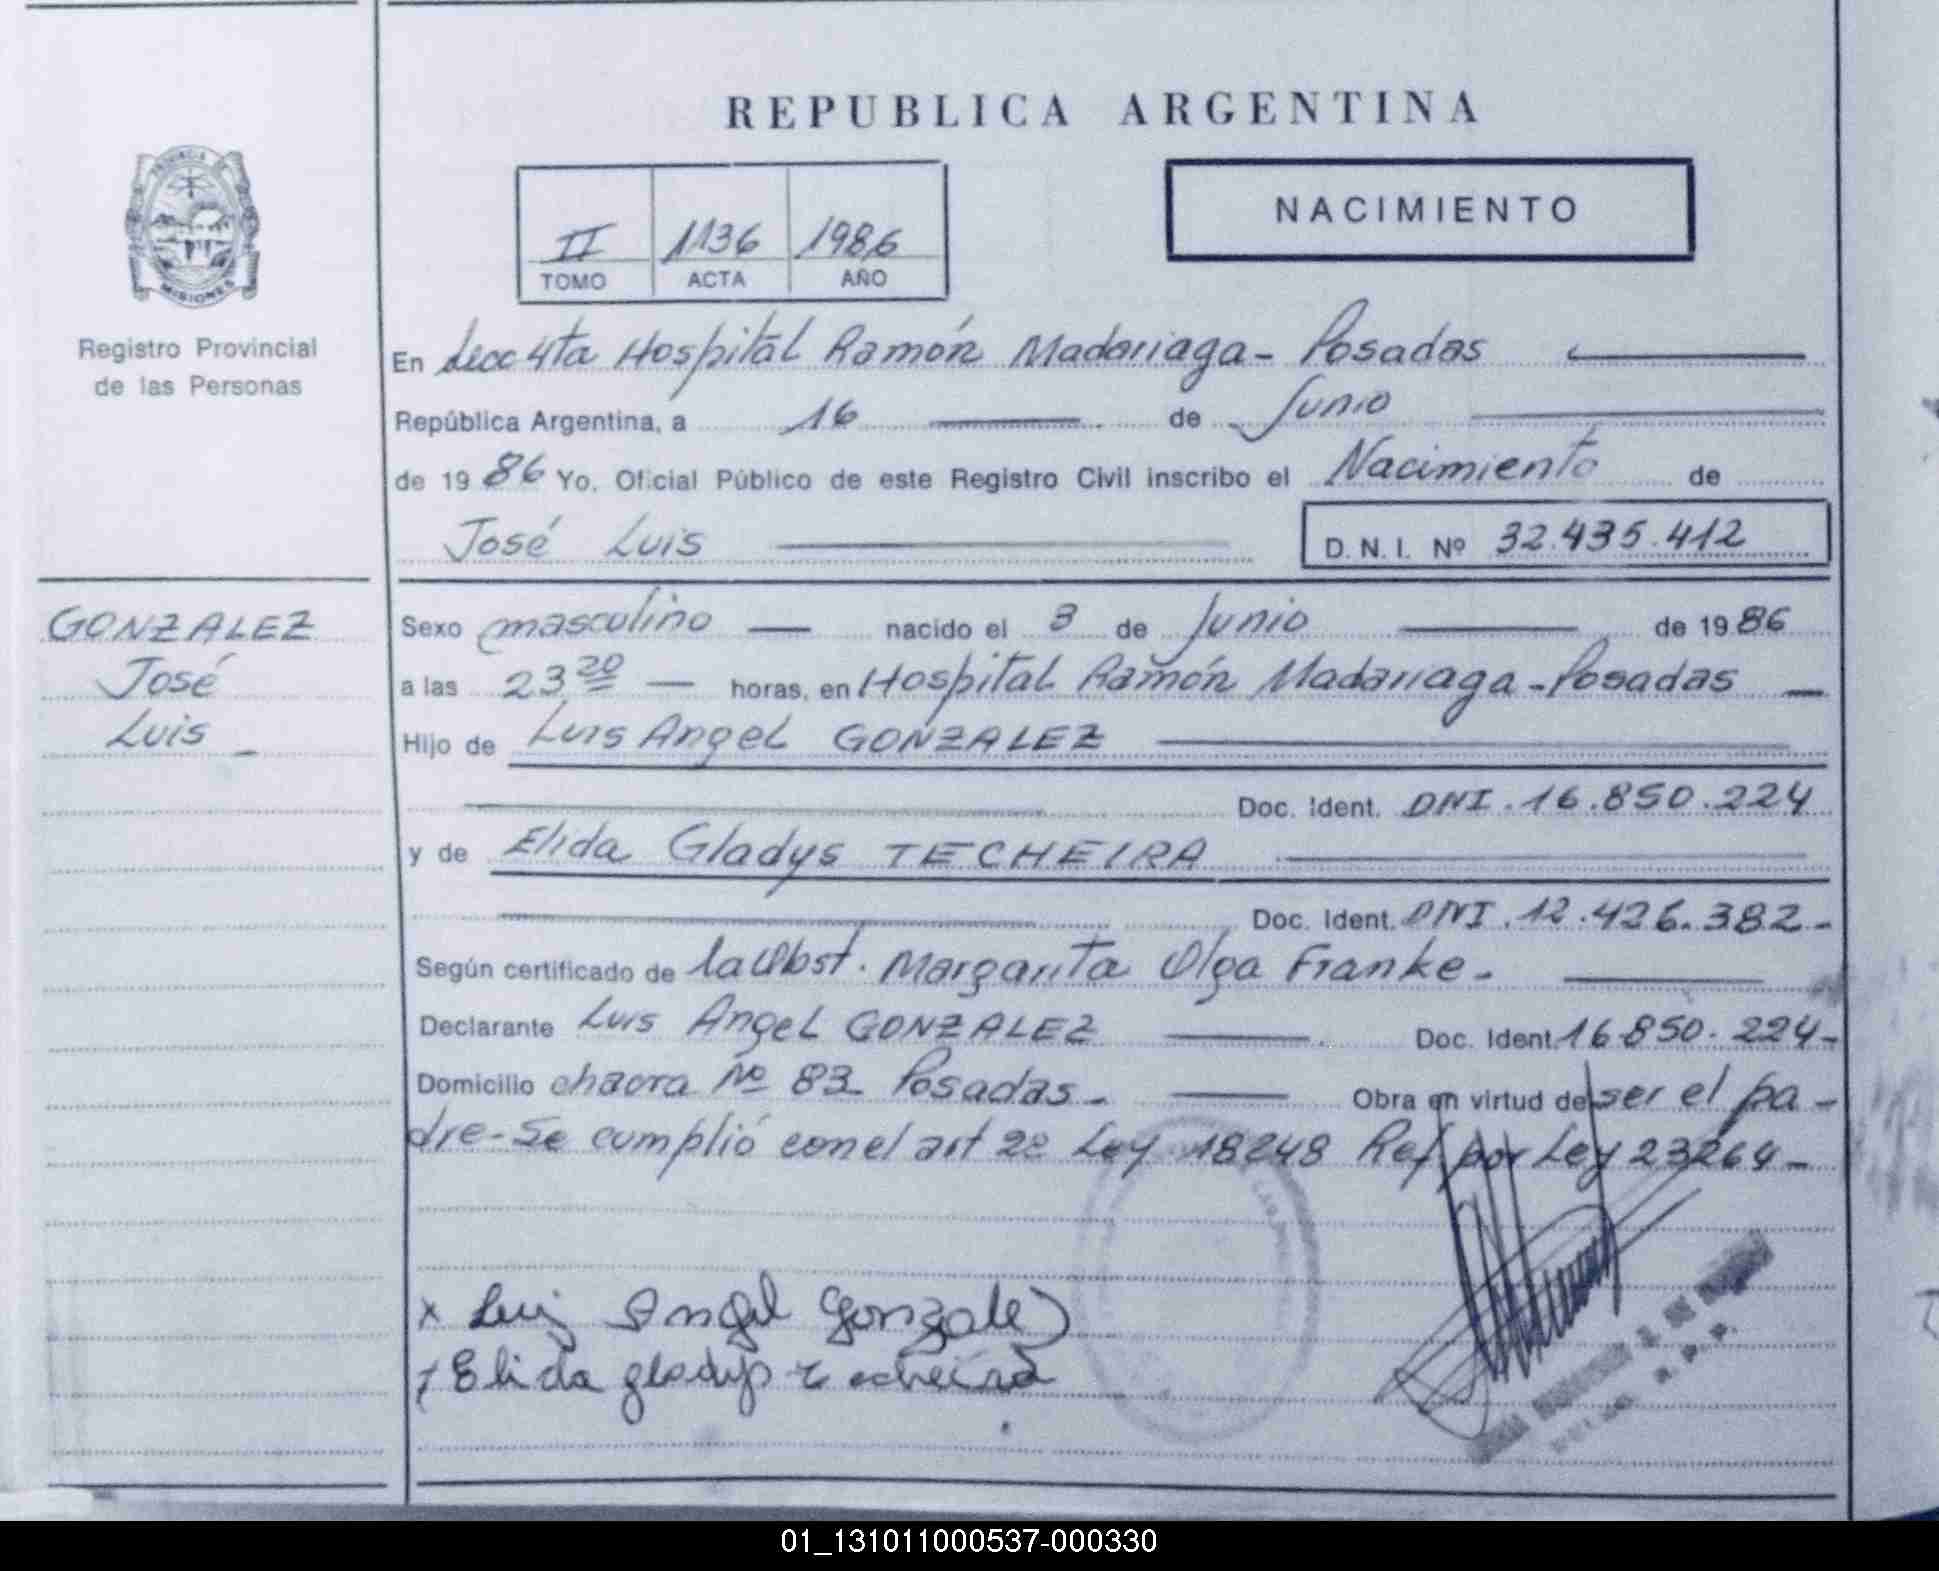 REPUBLICA ARGENTINA
PROVINCIA
MISIONES
Registro Provincial
de las Personas
NACIMIENTO
II 1136 1986
TOMO ACTA AÑO
En Secc 4ta Hospital Ramón Madariaga - Posadas
República Argentina, a 16 de Junio
de 1986 Yo, Oficial Público de este Registro Civil inscribo el Nacimiento de
José Luis D.N.I. Nº 32.435.412
GONZALEZ
José
Luis
Sexo masculino nacido el 3 de Junio de 1986
a las 23 20 horas, en Hospital Ramón Madariaga - Posadas
Hijo de Luis Angel GONZALEZ
Doc. Ident. DNI. 16.850.224
y de Elida Gladys TECHEIRA
Doc. Ident. DNI. 12.426.382-
Según certificado de la Obst. Margarita Olga Franke-
Declarante Luis Angel GONZALEZ Doc. Ident. 16.850.224-
Domicilio chacra Nº 83 Posadas- Obra en virtud de ser el pa-
dre-Se cumplió con el art 2º Ley 18248 Ref por Ley 23264-
x Luis Angel Gonzalez
x Elida gladys techeira
01_131011000537-000330